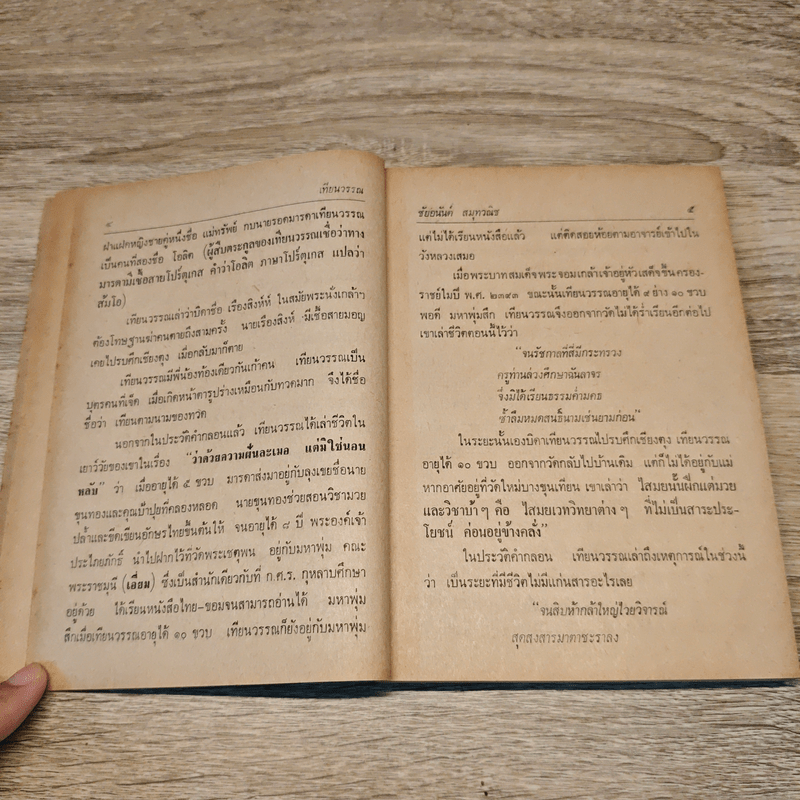 ๔ เทียนวรรณ
ฝ่าแฝดหญิงชายคู่หนึ่งชื่อ แม่ทรัพย์ กบนายรอดมารดาเทียนวรรณ
เป็นคนที่สองชื่อ โอลิต (ผู้สืบตระกูลของเทียนวรรณเชื่อว่าทาง
มารดามีเชื้อสายโปร์ตุเกส คำว่าโอลิต ภาษาโปร์ตุเกส แปลว่า
ส้มโอ)
เทียนวรรณเล่าว่าบิดาชื่อ เรืองสิงห์ห์ ในสมัยพระนั่งเกล้าฯ
ต้องโทษฐานฆ่าคนตายถึงสามครั้ง นายเรืองสิงห์ มีเชื้อสายมอญ
เคยไปรบศึกเชียงตุง เมื่อกลับมาก็ตาย
เทียนวรรณมีพี่น้องท้องเดียวกันเก้าคน เทียนวรรณเป็น
บุตรคนที่เจ็ด เมื่อเกิดหน้าตารูปร่างเหมือนกับทวดมาก จึงได้ชื่อ
ชื่อว่า เทียนตามนามของทวด
นอกจากในประวัติคำกลอนแล้ว เทียนวรรณได้เล่าชีวิตใน
เยาว์วัยของเขาในเรื่อง "ว่าด้วยความฝันละเมอ แต่มิใช่นอน
หลับ" ว่า เมื่ออายุได้ ๕ ขวบ มารดาส่งมาอยู่กับลุงเขยชื่อนาย
ขุนทองและคุณป้าปุ้ยที่คลองหลอด นายขุนทองช่วยสอนวิชามวย
ปล้ำและขีดเขียนอักษรไทยขั้นต้นให้ จนอายุได้ ๘ ปี พระองค์เจ้า
ประไภยภักดิ์ นำไปฝากไว้ที่วัดพระเชตุพน อยู่กับมหาพุ่ม คณะ
พระราชมุนี (เอี่ยม) ซึ่งเป็นสำนักเดียวกับที่ ก.ศ.ร. กุหลาบศึกษา
อยู่ด้วย ได้เรียนหนังสือไทย-ขอมจนสามารถอ่านได้ มหาพุ่ม
สึกเมื่อเทียนวรรณอายุได้ ๑๐ ขวบ เทียนวรรณก็ยังอยู่กับมหาพุ่ม
ชัยอนันต์ สมุทวณิช ๕
แต่ไม่ได้เรียนหนังสือแล้ว แต่ติดสอยห้อยตามอาจารย์เข้าไปใน
วังหลวงเสมอ
เมื่อพระบาทสมเด็จพระจอมเกล้าเจ้าอยู่หัวเสด็จขึ้นครอง-
ราชย์ในปี พ.ศ. ๒๓๙๓ ขณะนั้นเทียนวรรณอายุได้ ๙ ย่าง ๑๐ ขวบ
พอดี มหาพุ่มสึก เทียนวรรณจึงออกจากวัดไม่ได้ร่ำเรียนอีกต่อไป
เขาเล่าชีวิตตอนนี้ไว้ว่า
"จนรัชกาลที่สี่มีกระทรวง
ครูท่านล่วงศึกษาฉันลาจร
จึ่งมิได้เรียนธรรมค่ำมคธ
ซ้ำลืมหมดสนธิ์นามเช่นยามก่อน"
ในระยะนั้นเองบิดาเทียนวรรณไปรบศึกเชียงตุง เทียนวรรณ
อายุได้ ๑๐ ขวบ ออกจากวัดกลับไปบ้านเดิม แต่ก็ไม่ได้อยู่กับแม่
หากอาศัยอยู่ที่วัดใหม่บางขุนเทียน เขาเล่าว่า ไสมยนั้นฝึกแต่มวย
และวิชาบ้าๆ คือ ไสมยเวทวิทยาต่างๆ ที่ไม่เป็นสาระประ-
โยชน์ ค่อนอยู่ข้างคลั่ง"
ในประวัติคำกลอน เทียนวรรณเล่าถึงเหตุการณ์ในช่วงนี้
ว่า เป็นระยะที่มีชีวิตไม่มีแก่นสารอะไรเลย
"จนสิบห้ากล้าใหญ่ไวยวิจารณ์
สุดสงสารมาดาชะราลง